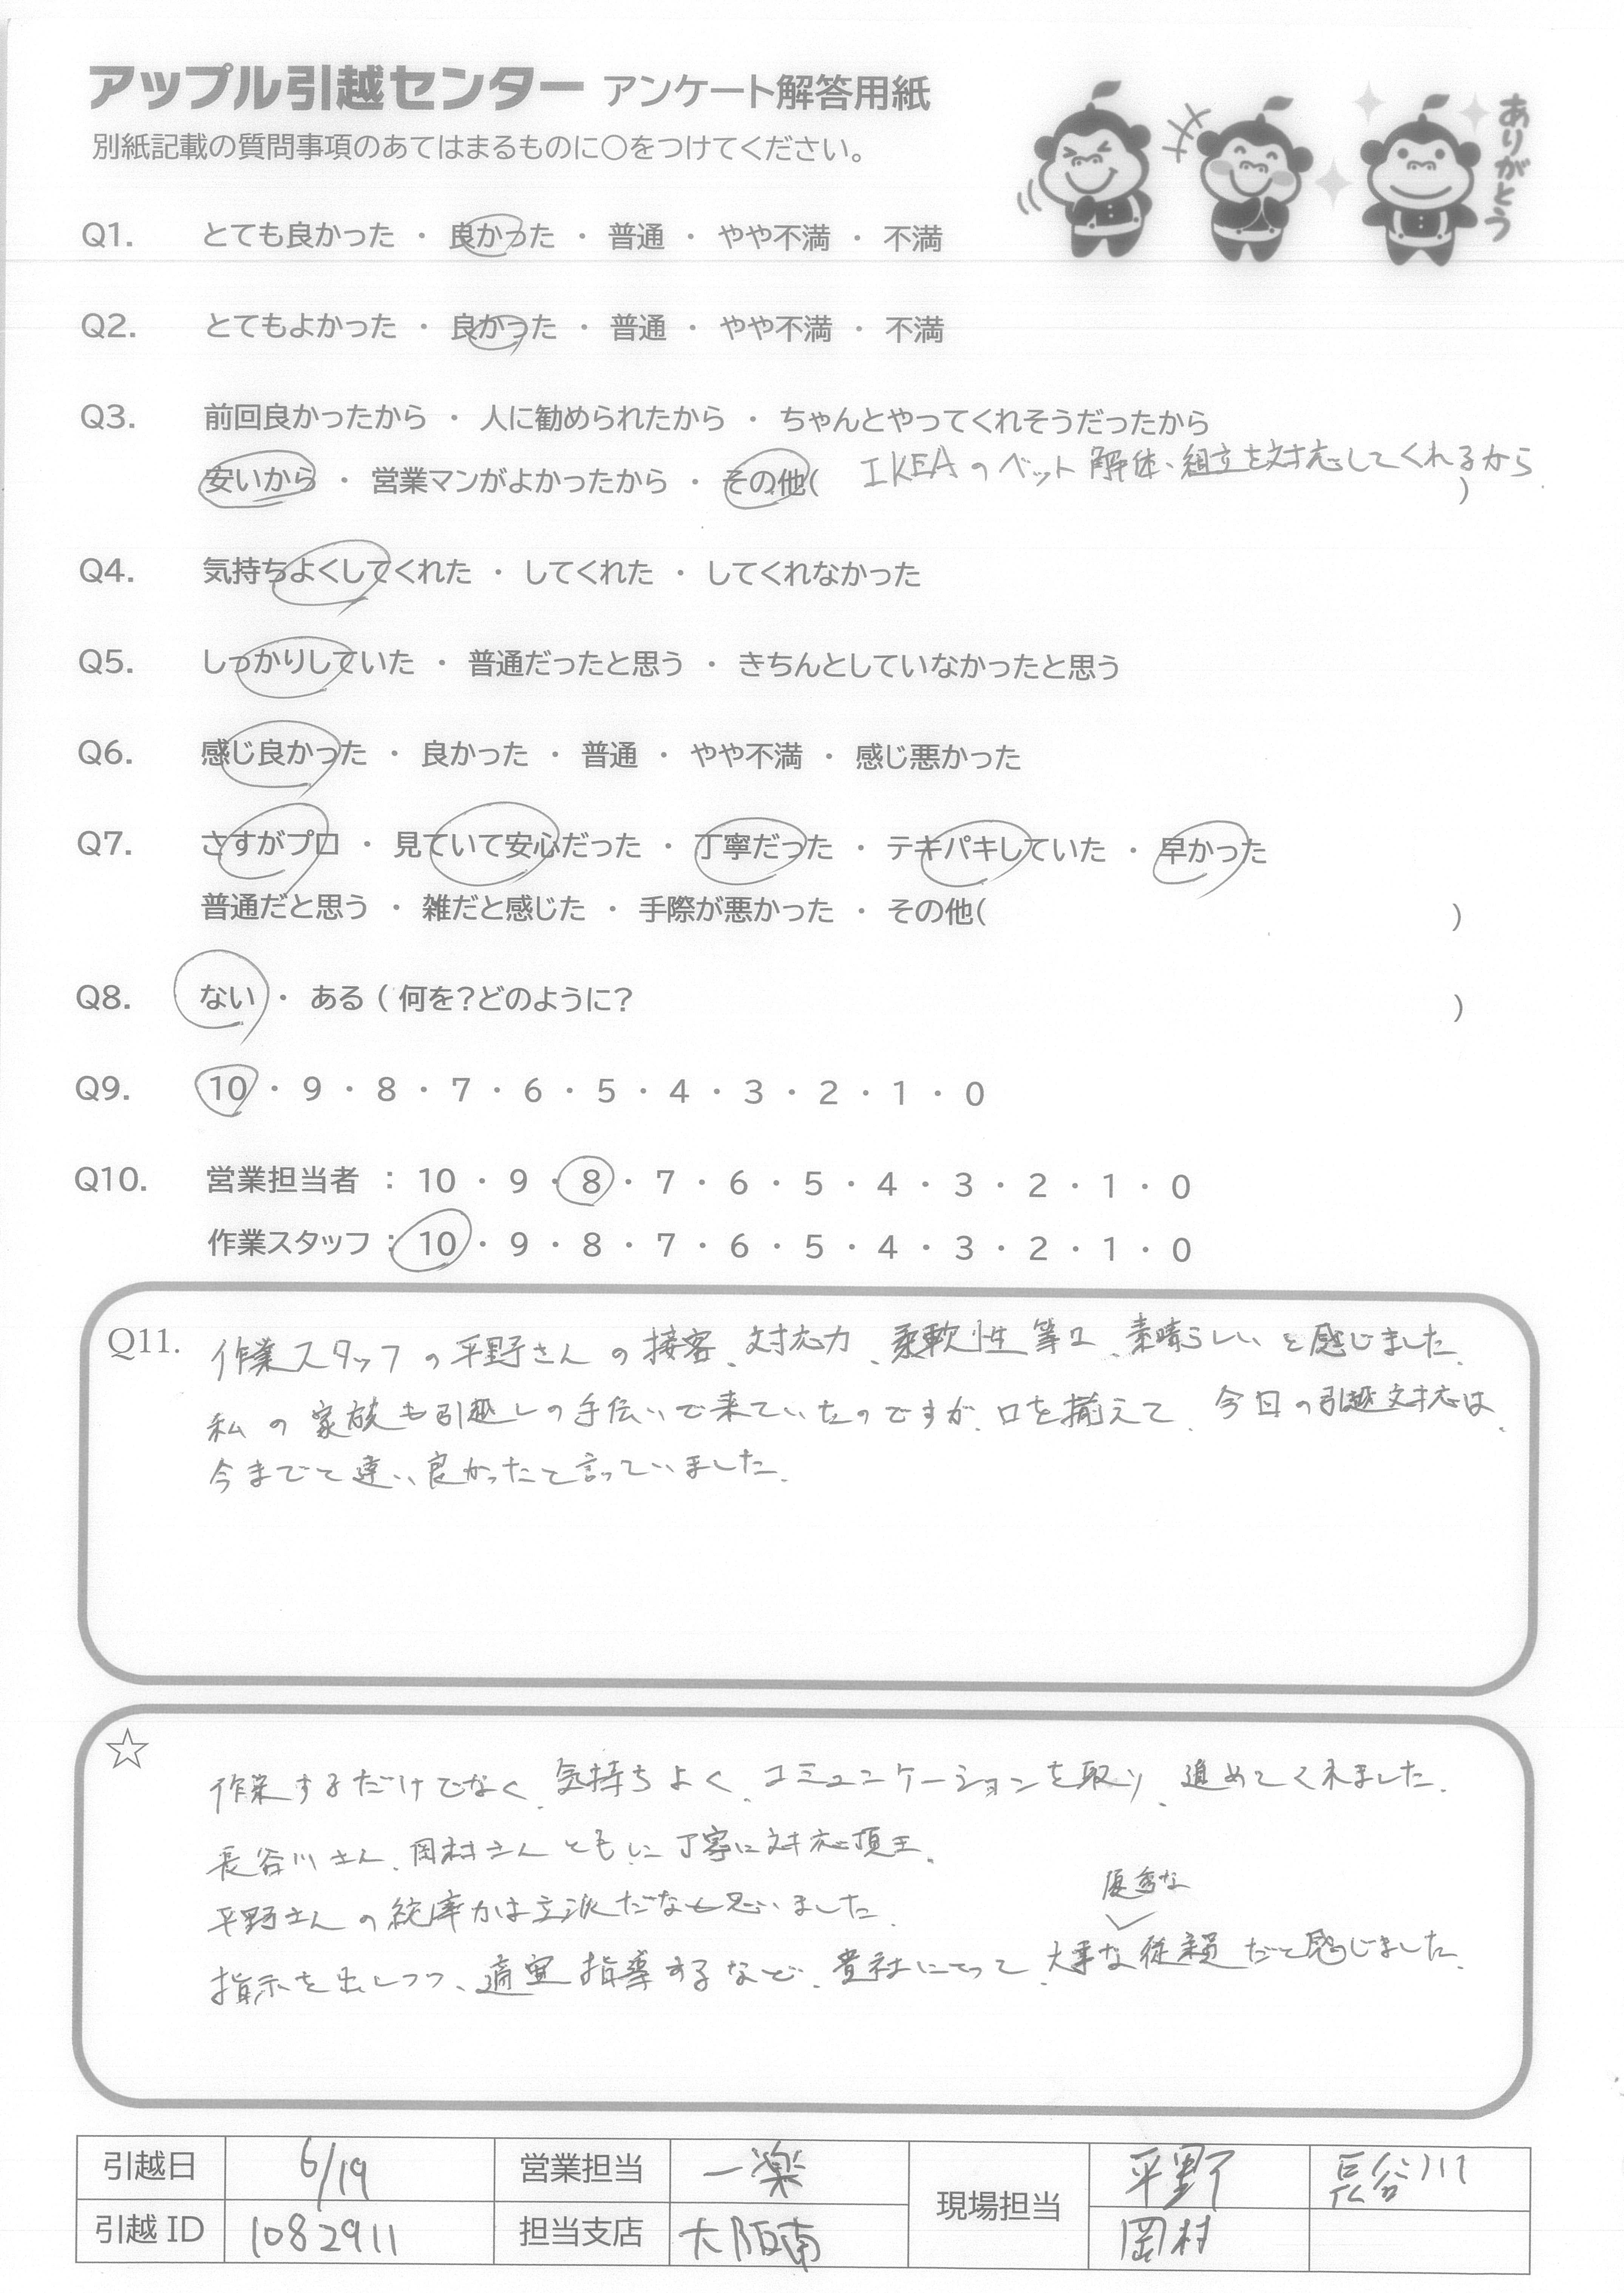 アップル引越センター アンケート解答用紙
別紙記載の質問事項のあてはまるものに○をつけてください。
ありがとう
Q1. とても良かった ・ 良かった ・ 普通 ・ やや不満 ・ 不満
Q2. とてもよかった ・ 良かった ・ 普通 ・ やや不満 ・ 不満
Q3. 前回良かったから ・ 人に勧められたから ・ ちゃんとやってくれそうだったから
安いから ・ 営業マンがよかったから ・ その他( IKEAのベット解体、組立を対応してくれるから )
Q4. 気持ちよくしてくれた ・ してくれた ・ してくれなかった
Q5. しっかりしていた ・ 普通だったと思う ・ きちんとしていなかったと思う
Q6. 感じ良かった ・ 良かった ・ 普通 ・ やや不満 ・ 感じ悪かった
Q7. さすがプロ ・ 見ていて安心だった ・ 丁寧だった ・ テキパキしていた ・ 早かった
普通だと思う ・ 雑だと感じた ・ 手際が悪かった ・ その他( )
Q8. ない ・ ある ( 何を?どのように? )
Q9. 10 ・ 9 ・ 8 ・ 7 ・ 6 ・ 5 ・ 4 ・ 3 ・ 2 ・ 1 ・ 0
Q10. 営業担当者 : 10 ・ 9 ・ 8 ・ 7 ・ 6 ・ 5 ・ 4 ・ 3 ・ 2 ・ 1 ・ 0
作業スタッフ : 10 ・ 9 ・ 8 ・ 7 ・ 6 ・ 5 ・ 4 ・ 3 ・ 2 ・ 1 ・ 0
Q11. 作業スタッフの平野さんの接客、対応力、柔軟性等、素晴らしいと感じました。
私の家族も引越しの手伝いで来ていたのですが、口を揃えて、今日の引越対応は、
今までと違い良かったと言っていました。
☆
作業するだけでなく、気持ちよく、コミュニケーションを取り、進めてくれました。
長谷川さん、岡村さんともに丁寧に対応頂き、
平野さんの統率力は立派だなと思いました。
優秀な
指示を出しつつ、適宜指導するなど、貴社にとって、大事な従業員だと感じました。
引越日 6/19 営業担当 一楽 現場担当 平野 長谷川
引越 ID 1082911 担当支店 大阪南 岡村